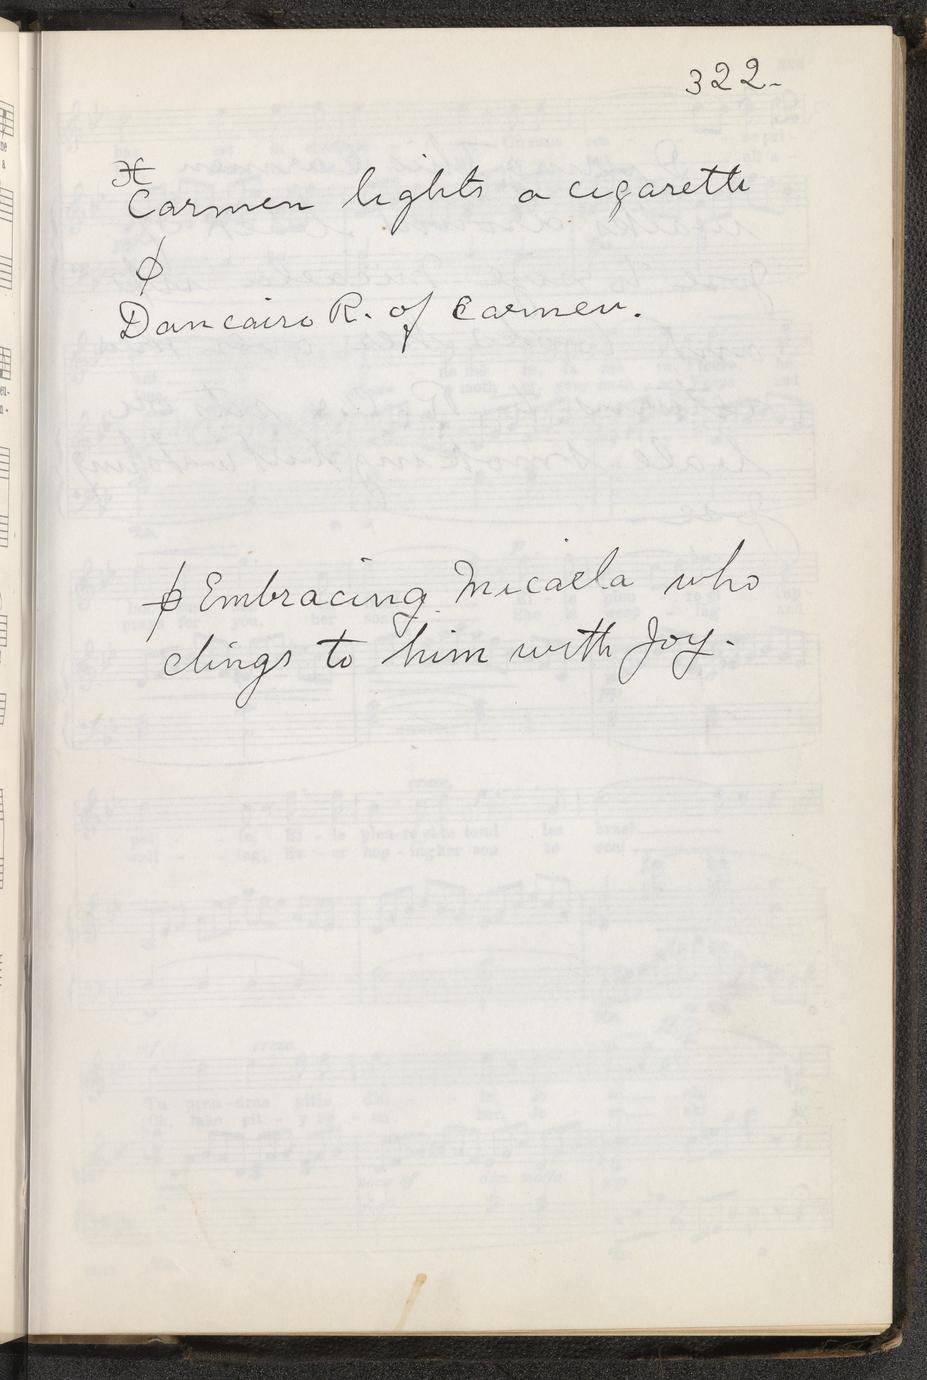 322-
Carmen lights a cigarette
ϕ
Dancairo R. of Carmen.
ϕ Embracing Micaela who
clings to him with Joy-